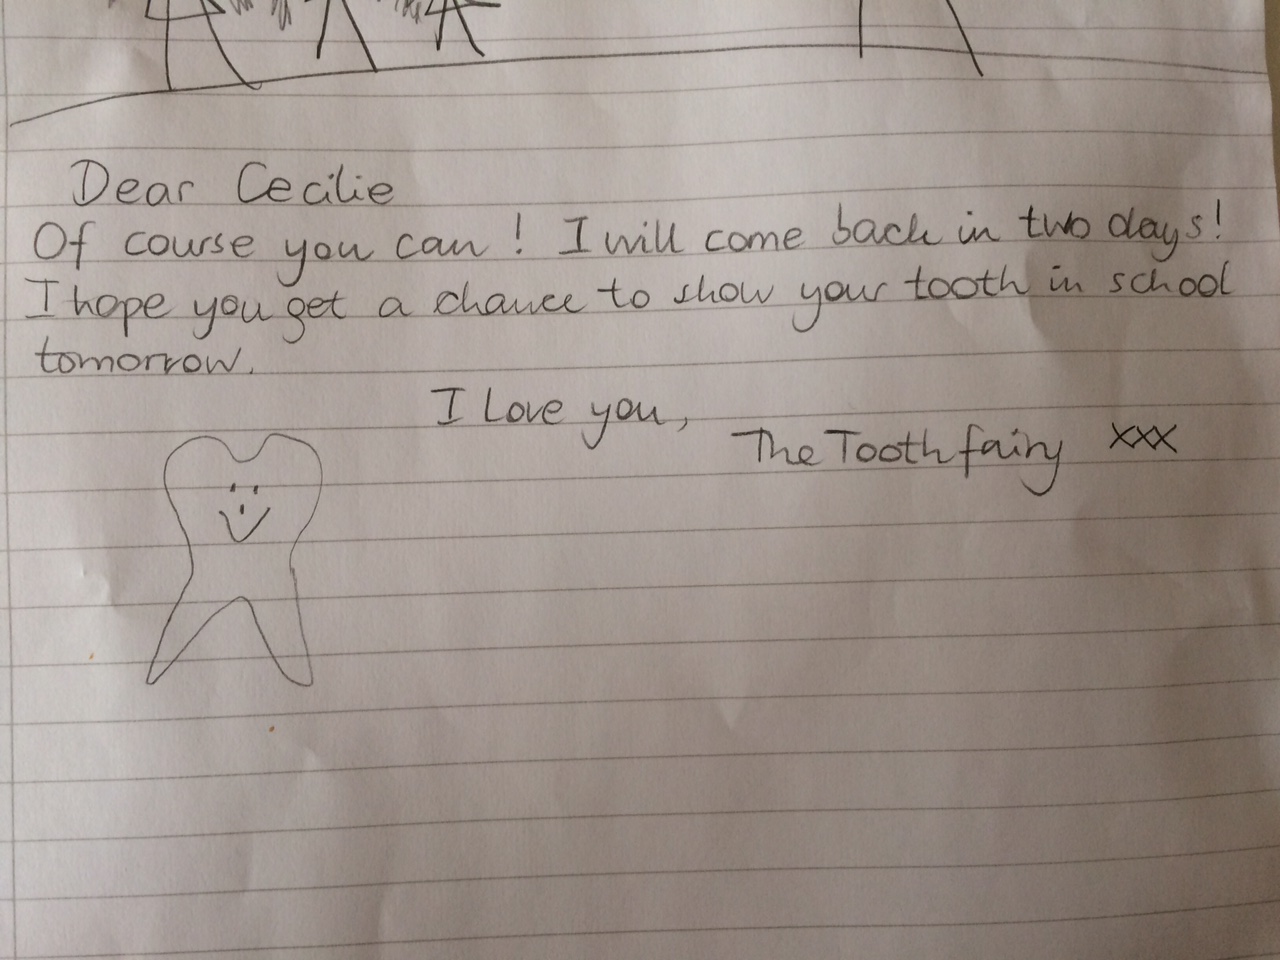 Dear Cecilie
Of course you can! I will come back in two days!
I hope you get a chance to show your tooth in school
tomorrow.
I Love you,
The Toothfairy xxx